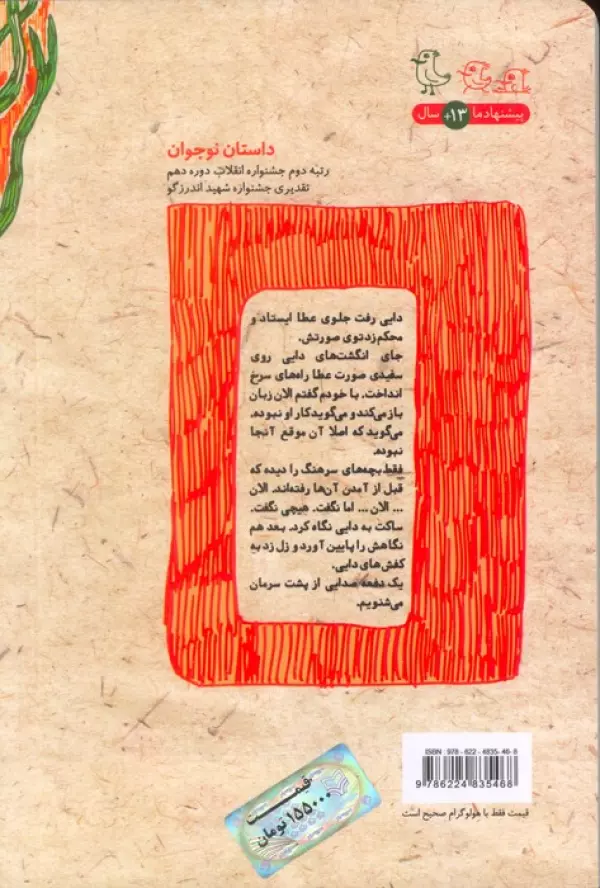 پیشنهاد ما +۱۳ سال
داستان نوجوان
رتبه دوم جشنواره انقلاب، دوره دهم
تقدیری جشنواره شهید اندرزگو
دایی رفت جلوی عطا ایستاد و
محکم زد توی صورتش.
جای انگشت‌های دایی روی
سفیدی صورت عطا راه‌های سرخ
انداخت. با خودم گفتم الان زبان
باز می‌کند و می‌گوید کار او نبوده.
می‌گوید که اصلا آن موقع آنجا
نبوده.
فقط بچه‌های سرهنگ را دیده که
قبل از آمدن آن‌ها رفته‌اند. الان
... الان ... اما نگفت. هیچی نگفت.
ساکت به دایی نگاه کرد. بعد هم
نگاهش را پایین آورد و زل زد به
کفش‌های دایی.
یک دفعه صدایی از پشت سرمان
می‌شنویم.
ISBN : 978 - 622 - 4835- 46- 8
9 786224 835468
قیمت فقط با هولوگرام صحیح است
قیمت
۱۵۵۰۰۰ تومان